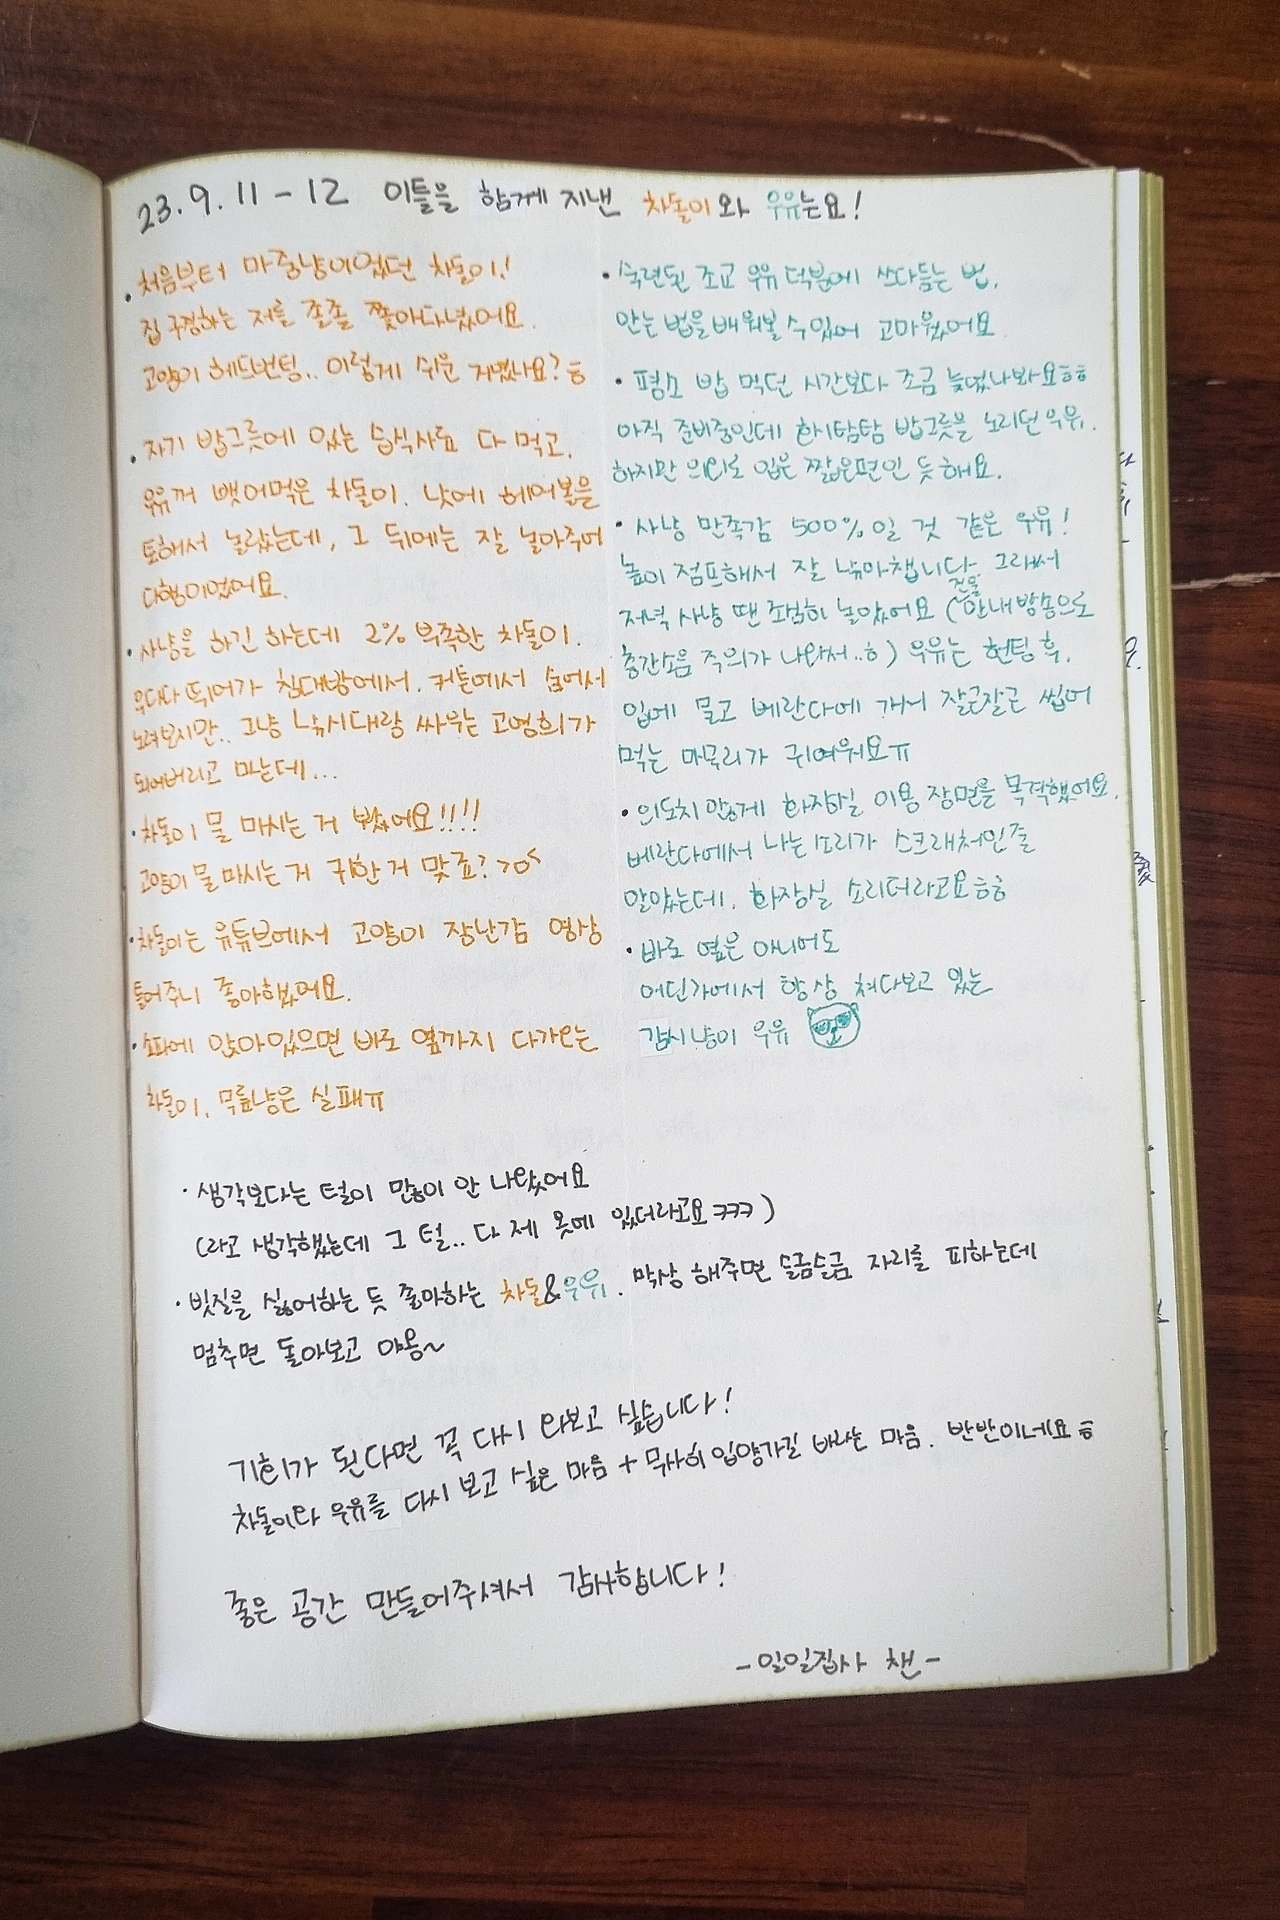 23.9.11-12 이틀을 함께 지낸 차돌이와 우유는요!
· 처음부터 마중냥이였던 차돌이!
집 구경하는 저를 졸졸 쫓아다녔어요.
고양이 헤드번팅.. 이렇게 쉬운 거였나요? ㅎ
· 자기 밥그릇에 있는 습식사료 다 먹고,
우유꺼 뺏어먹은 차돌이. 낮에 헤어볼을
토해서 놀랐는데, 그 뒤에는 잘 놀아주어
다행이었어요.
· 사냥을 하긴 하는데 2% 부족한 차돌이.
우다다 뛰어가 침대방에서, 커튼에서 숨어서
노려보지만.. 그냥 낚시대랑 싸우는 고영희가
되어버리고 마는데...
· 차돌이 물 마시는 거 봤어요!!!!
고양이 물 마시는 거 귀한 거 맞죠? >ㅇ<
· 차돌이는 유튜브에서 고양이 장난감 영상
틀어주니 좋아했어요.
· 소파에 앉아있으면 바로 옆까지 다가오는
차돌이. 무릎냥은 실패ㅠ
· 숙련된 조교 우유 덕분에 쓰다듬는 법,
안는 법을 배워볼 수 있어 고마웠어요
· 평소 밥 먹던 시간보다 조금 늦었나봐요ㅎㅎ
아직 준비중인데 호시탐탐 밥그릇을 노리던 우유.
하지만 의외로 입은 짧은편인 듯 해요.
· 사냥 만족감 500%일 것 같은 우유!
높이 점프해서 잘 낚아챕니다. 그래서
저녁 사냥 땐 조심히 놀았어요 (건물 안내방송으로
층간소음 주의가 나와서..ㅎ) 우유는 헌팅 후,
입에 물고 베란다에 가서 잘근잘근 씹어
먹는 마무리가 귀여워요ㅠ
· 의도치 않게 화장실 이용 장면을 목격했어요.
베란다에서 나는 소리가 스크래처인줄
알았는데, 화장실 소리더라고요ㅎㅎ
· 바로 옆은 아니어도
어딘가에서 항상 쳐다보고 있는
감시냥이 우유
· 생각보다는 털이 많이 안 나왔어요
(라고 생각했는데 그 털.. 다 제 옷에 있더라고요ㅋㅋㅋ)
· 빗질을 싫어하는 듯 좋아하는 차돌&우유. 막상 해주면 슬금슬금 자리를 피하는데
멈추면 돌아보고 야옹~
기회가 된다면 꼭 다시 와보고 싶습니다!
차돌이와 우유를 다시 보고 싶은 마음 + 무사히 입양가길 바라는 마음. 반반이네요ㅎ
좋은 공간 만들어주셔서 감사합니다!
-일일집사 챈-